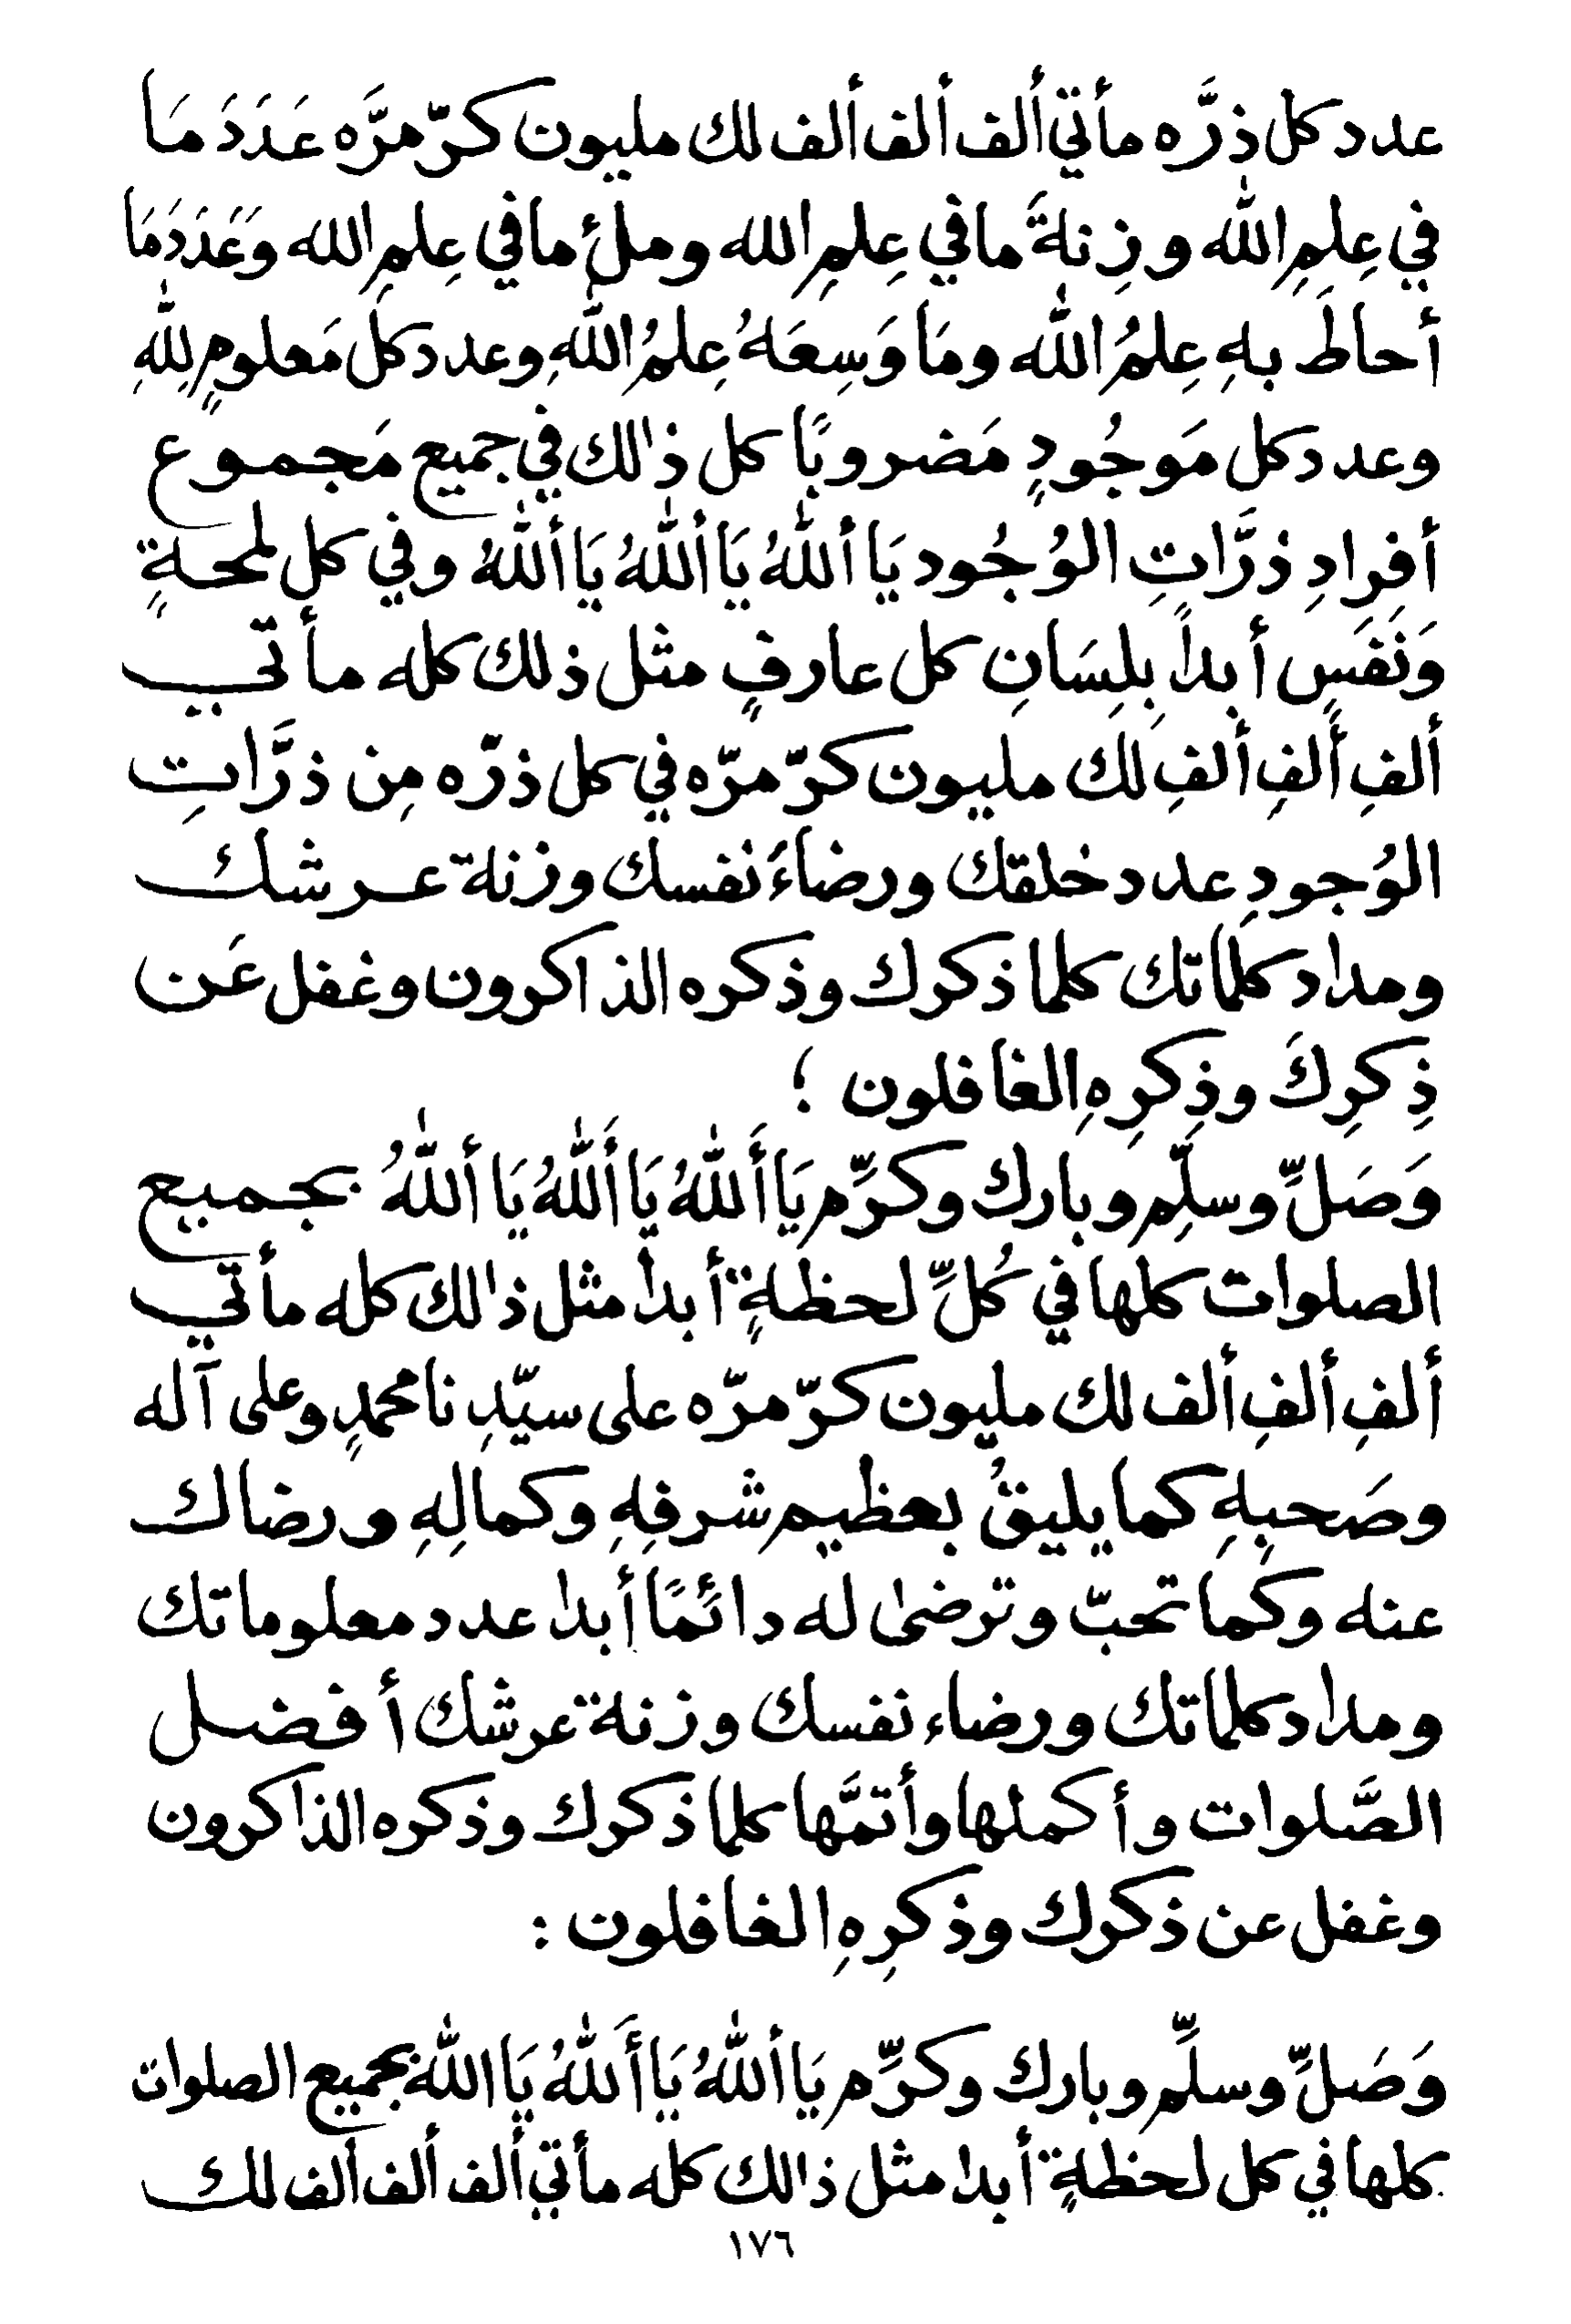 عدد كل ذرَّه مأتي ألف ألف ألف لك مليون كرّ مرَّه عَدَدَ مَا
في عِلمِ اللّٰه وزِنةَ ما في عِلمِ الله وملئ ما في عِلمِ الله وَعَدَدَمَا
أحاطَ بهِ عِلمُ اللّٰه ومَا وَسِعَهُ عِلمُ اللّٰهِ وعدد كل مَعلومٍ لِلّٰهِ
وعدد كل مَوجُودٍ مَضروبًا كل ذالك في جميع مَجموع
أفرادِ ذرَّاتِ الوُجُود يَا أللّٰهُ يَا أللّٰهُ يَا أللّٰهُ وفي كل لمحةٍ
وَنَفَسٍ أبداً بِلِسَانِ كل عارفٍ مثل ذلك كله مأتي
ألفِ ألفِ ألفِ لك مليون كرّ مرّه في كل ذرّه مِن ذرَّاتِ
الوُجودِ عدد خلقك ورضاءَ نفسك وزنة عرشك
ومداد كلماتك كلما ذكرك وذكره الذاكرون وغفل عَن
ذِكرِكَ وذِكرِهِ الغافلون ؛
وَصَلِّ وسلِّم وبارك وكرِّم يَا أَللّٰهُ يَا أَللّٰهُ يَا أللّٰهُ بجميع
الصلوات كلها في كُلِّ لحظةٍ أبدا مثل ذالك كله مأتي
ألفِ ألفِ ألف لك مليون كرّ مرّه على سيّدِنا محمدٍ وعلى آله
وصَحبِهِ كما يليقُ بعظيم شرفِهِ وكمالِهِ ورضاك
عنه وكما تحبّ وترضى له دائمًا أبدا عدد معلوماتك
ومداد كلماتك ورضاء نفسك وزنة عرشك أفضل
الصَّلوات وأكملها وأتمَّها كلما ذكرك وذكره الذاكرون
وغفل عن ذكرك وذكرِهِ الغافلون :
وَصَلِّ وسلِّم وبارك وكرِّم يَا أللّٰهُ يَا أَللّٰهُ يَا اللّٰه بجميع الصلوات
كلها في كل لحظةٍ أبدا مثل ذالك كله مأتي ألف ألف ألف لك
١٧٦